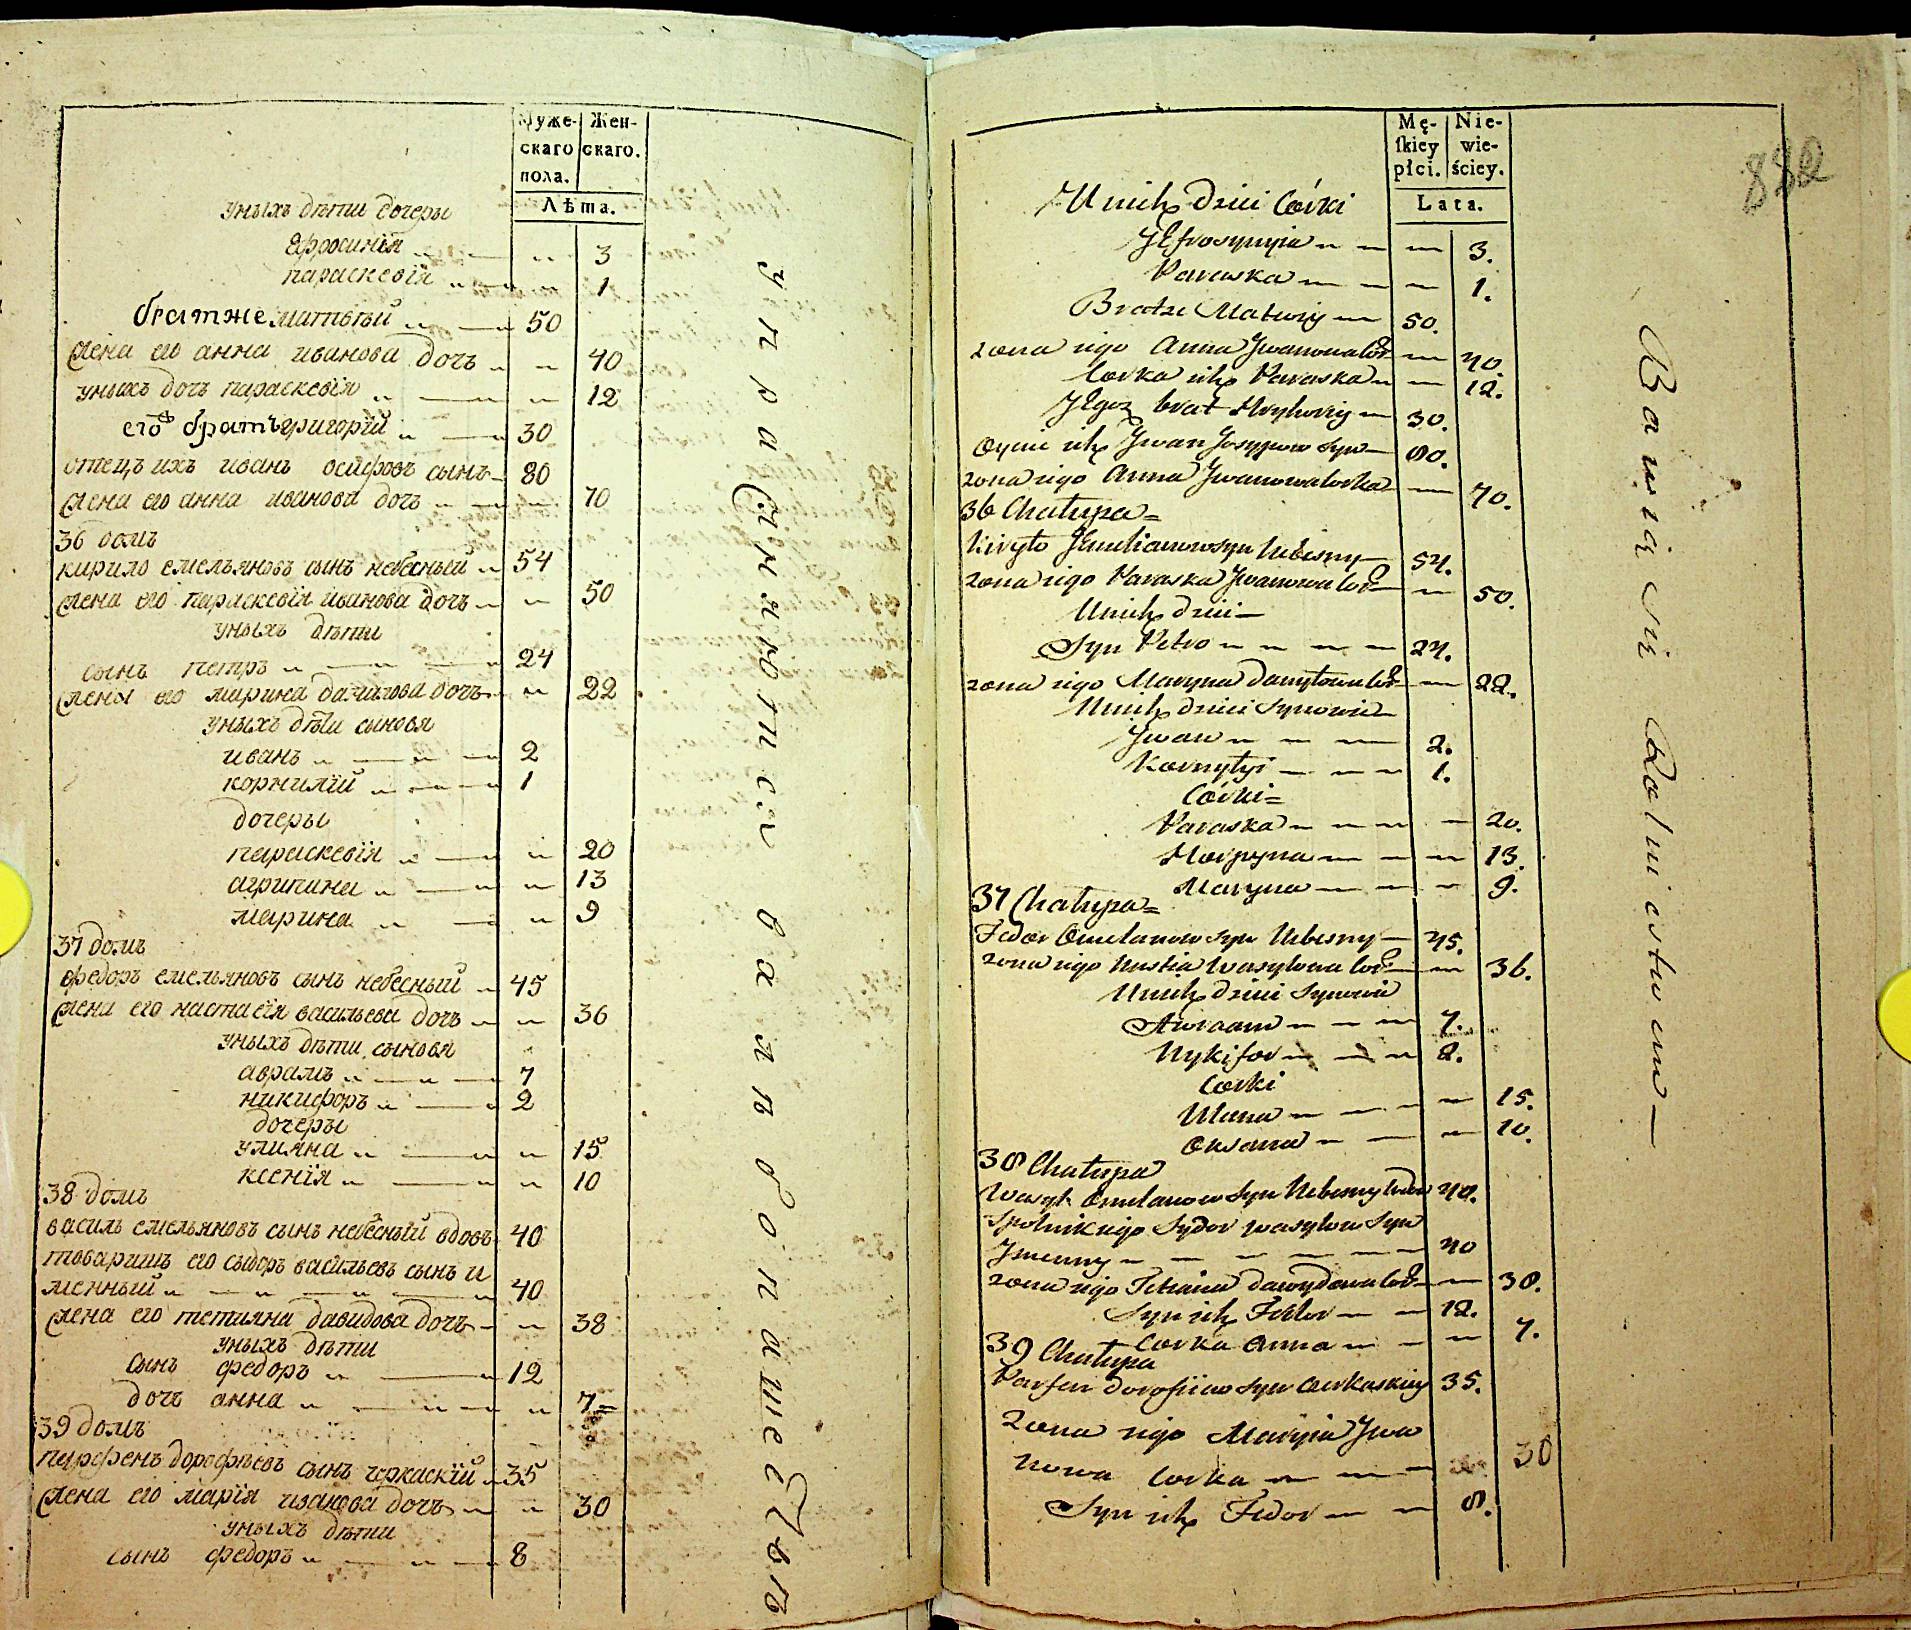 Мужескаго пола. Женскаго.
Лѣта.
уныхъ дѣти дочеры
ефросинія 3
параскевія 1
братже матвѣй 50
жена его анна иванова дочъ 40
уныхъ дочъ параскевія 12
его братъ григорій 30
отецъ ихъ иванъ осифовъ сынъ 80
жена его анна иванова дочъ 70
36 домъ
кирило емельяновъ сынъ небесный 54
жена его параскевія иванова дочъ 50
уныхъ дѣти
сынъ петръ 24
жена его марина данилова дочъ 22
уныхъ дѣти сыновя
иванъ 2
корнилій 1
дочеры
параскевія 20
агрипина 13
марина 9
37 домъ
федоръ емельяновъ сынъ небесный 45
жена его настасія васильева дочъ 36
уныхъ дѣти сыновя
аврамъ 7
никифоръ 2
дочеры
улияна 15
ксенія 10
38 домъ
василь емельяновъ сынъ небесный вдовъ 40
товаришъ его сидоръ васильевъ сынъ и
менный 40
жена его тетияна давидова дочъ 38
уныхъ дѣти
сынъ федоръ 12
дочъ анна 7
39 домъ
парфенъ дорофѣевъ сынъ черкаскій 35
жена его марія иванова дочъ 30
уныхъ дѣти
сынъ федоръ 8
упражняютися вхлѣбопашествѣ
Męſkiey płci. Niewieściey.
Lata.
882
Unich Dzieci Córki
JEfrosynyia 3.
Paraska 1.
Bratże Matwiy 50.
zona iego Anna Jwanowa Cor: 40.
Corka ich Paraska 12.
JEgoż brat Hryhoriy 30.
Oyciec ich Jwan Josypow Syn 80.
zona iego Anna Jwanowa Corka 70.
36 Chatupa
Kiryło JEmelianow syn Nebesny 54.
zona iego Paraska Jwanowa Cor: 50.
Unich dzieci
Syn Petro 24.
zona iego Maryna Danyłowa Cor: 22.
Unich dzieci Synowie
Jwan 2.
Kornyłyi 1.
Córki
Paraska 20.
Horpyna 13.
Maryna 9.
37 Chatupa
Fedor Omelanow Syn Nebesny 45.
zona iego Nastia Wasylowa Cor: 36.
Unich dzieci Synowie
Awraam 7.
Nykifor 2.
Corki
Ulana 15.
Oksana 10.
38 Chatupa
Wasyl Omelanow Syn Nebesny wdow 40.
Spolnik iego Sydor Wasylow Syn
Jmenny 40
zona iego Tetiana Dawydowa Cor: 38.
Syn ich Fedor 12.
Corka Anna 7.
39 Chatupa
Parfen Dorofiiow Syn Czerkaskiey 35.
Zona iego Maryia Jwa
nowa Corka 30
Syn ich Fedor 8.
Bawią się Rolnictwem